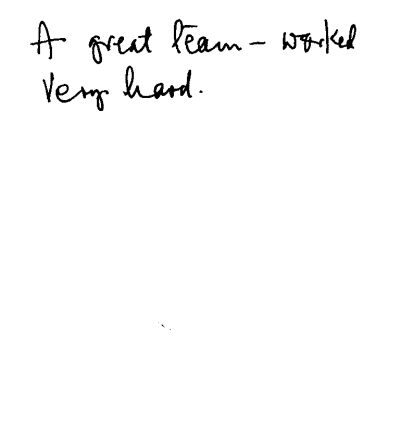 A great team - worked
very hard.